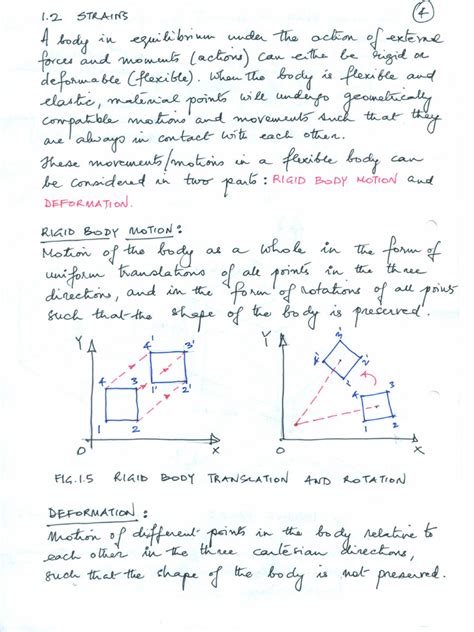 1.2 STRAINS
4
A body in equilibrium under the action of external
forces and moments (actions) can either be rigid or
deformable (flexible). When the body is flexible and
elastic, material points will undergo geometrically
compatible motions and movements such that they
are always in contact with each other.
These movements/motions in a flexible body can
be considered in two parts: RIGID BODY MOTION and
DEFORMATION.
RIGID BODY MOTION:
Motion of the body as a whole in the form of
uniform translations of all points in the three
directions, and in the form of rotations of all points
such that the shape of the body is preserved.
Y 4' 3'
4 3 1' 2'
1 2
O X
Y
4 3
1 2
O X
FIG.1.5 RIGID BODY TRANSLATION AND ROTATION
DEFORMATION:
Motion of different points in the body relative to
each other in the three cartesian directions,
such that the shape of the body is not preserved.